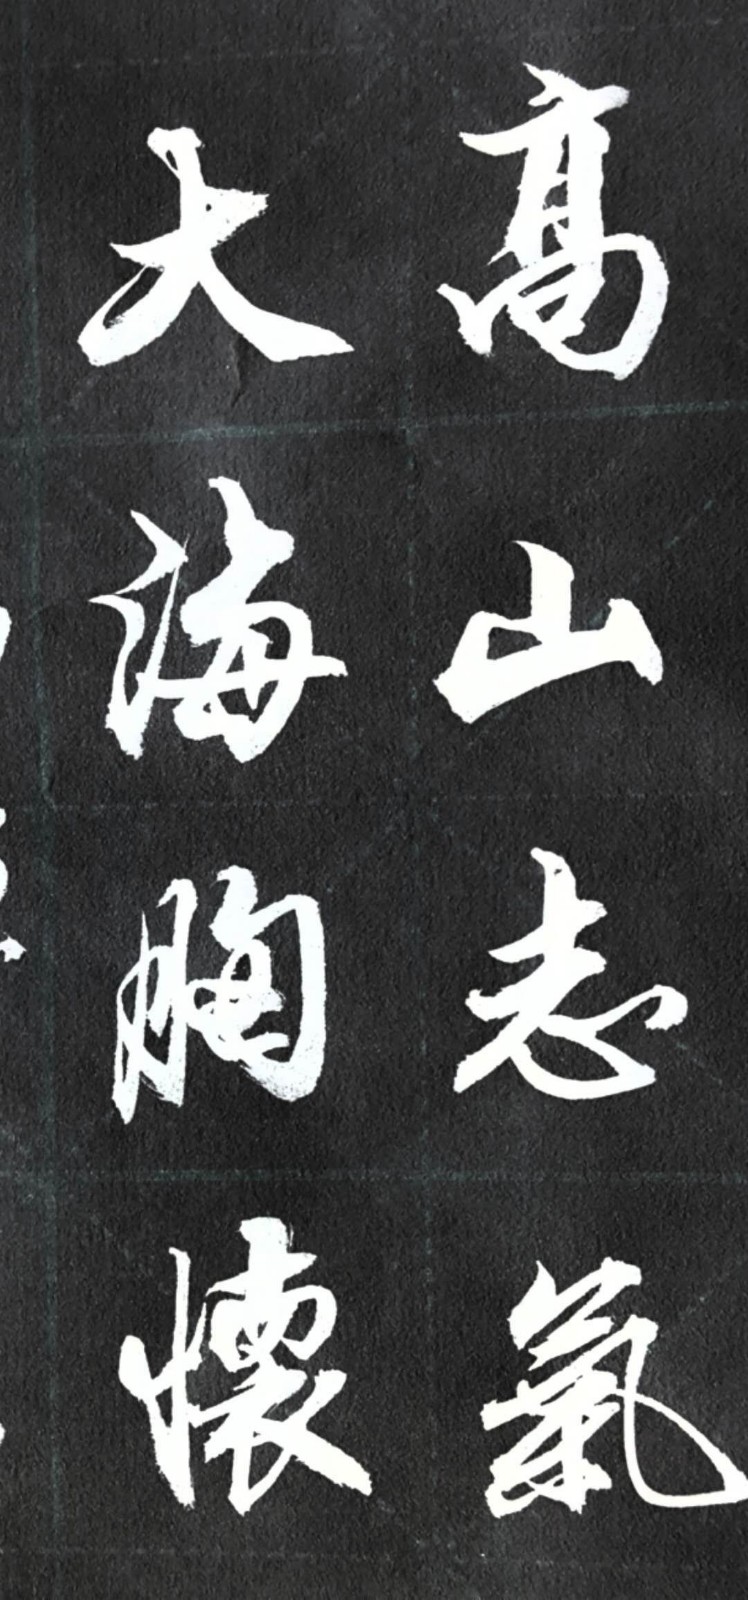 高山志氣
大海胸懷